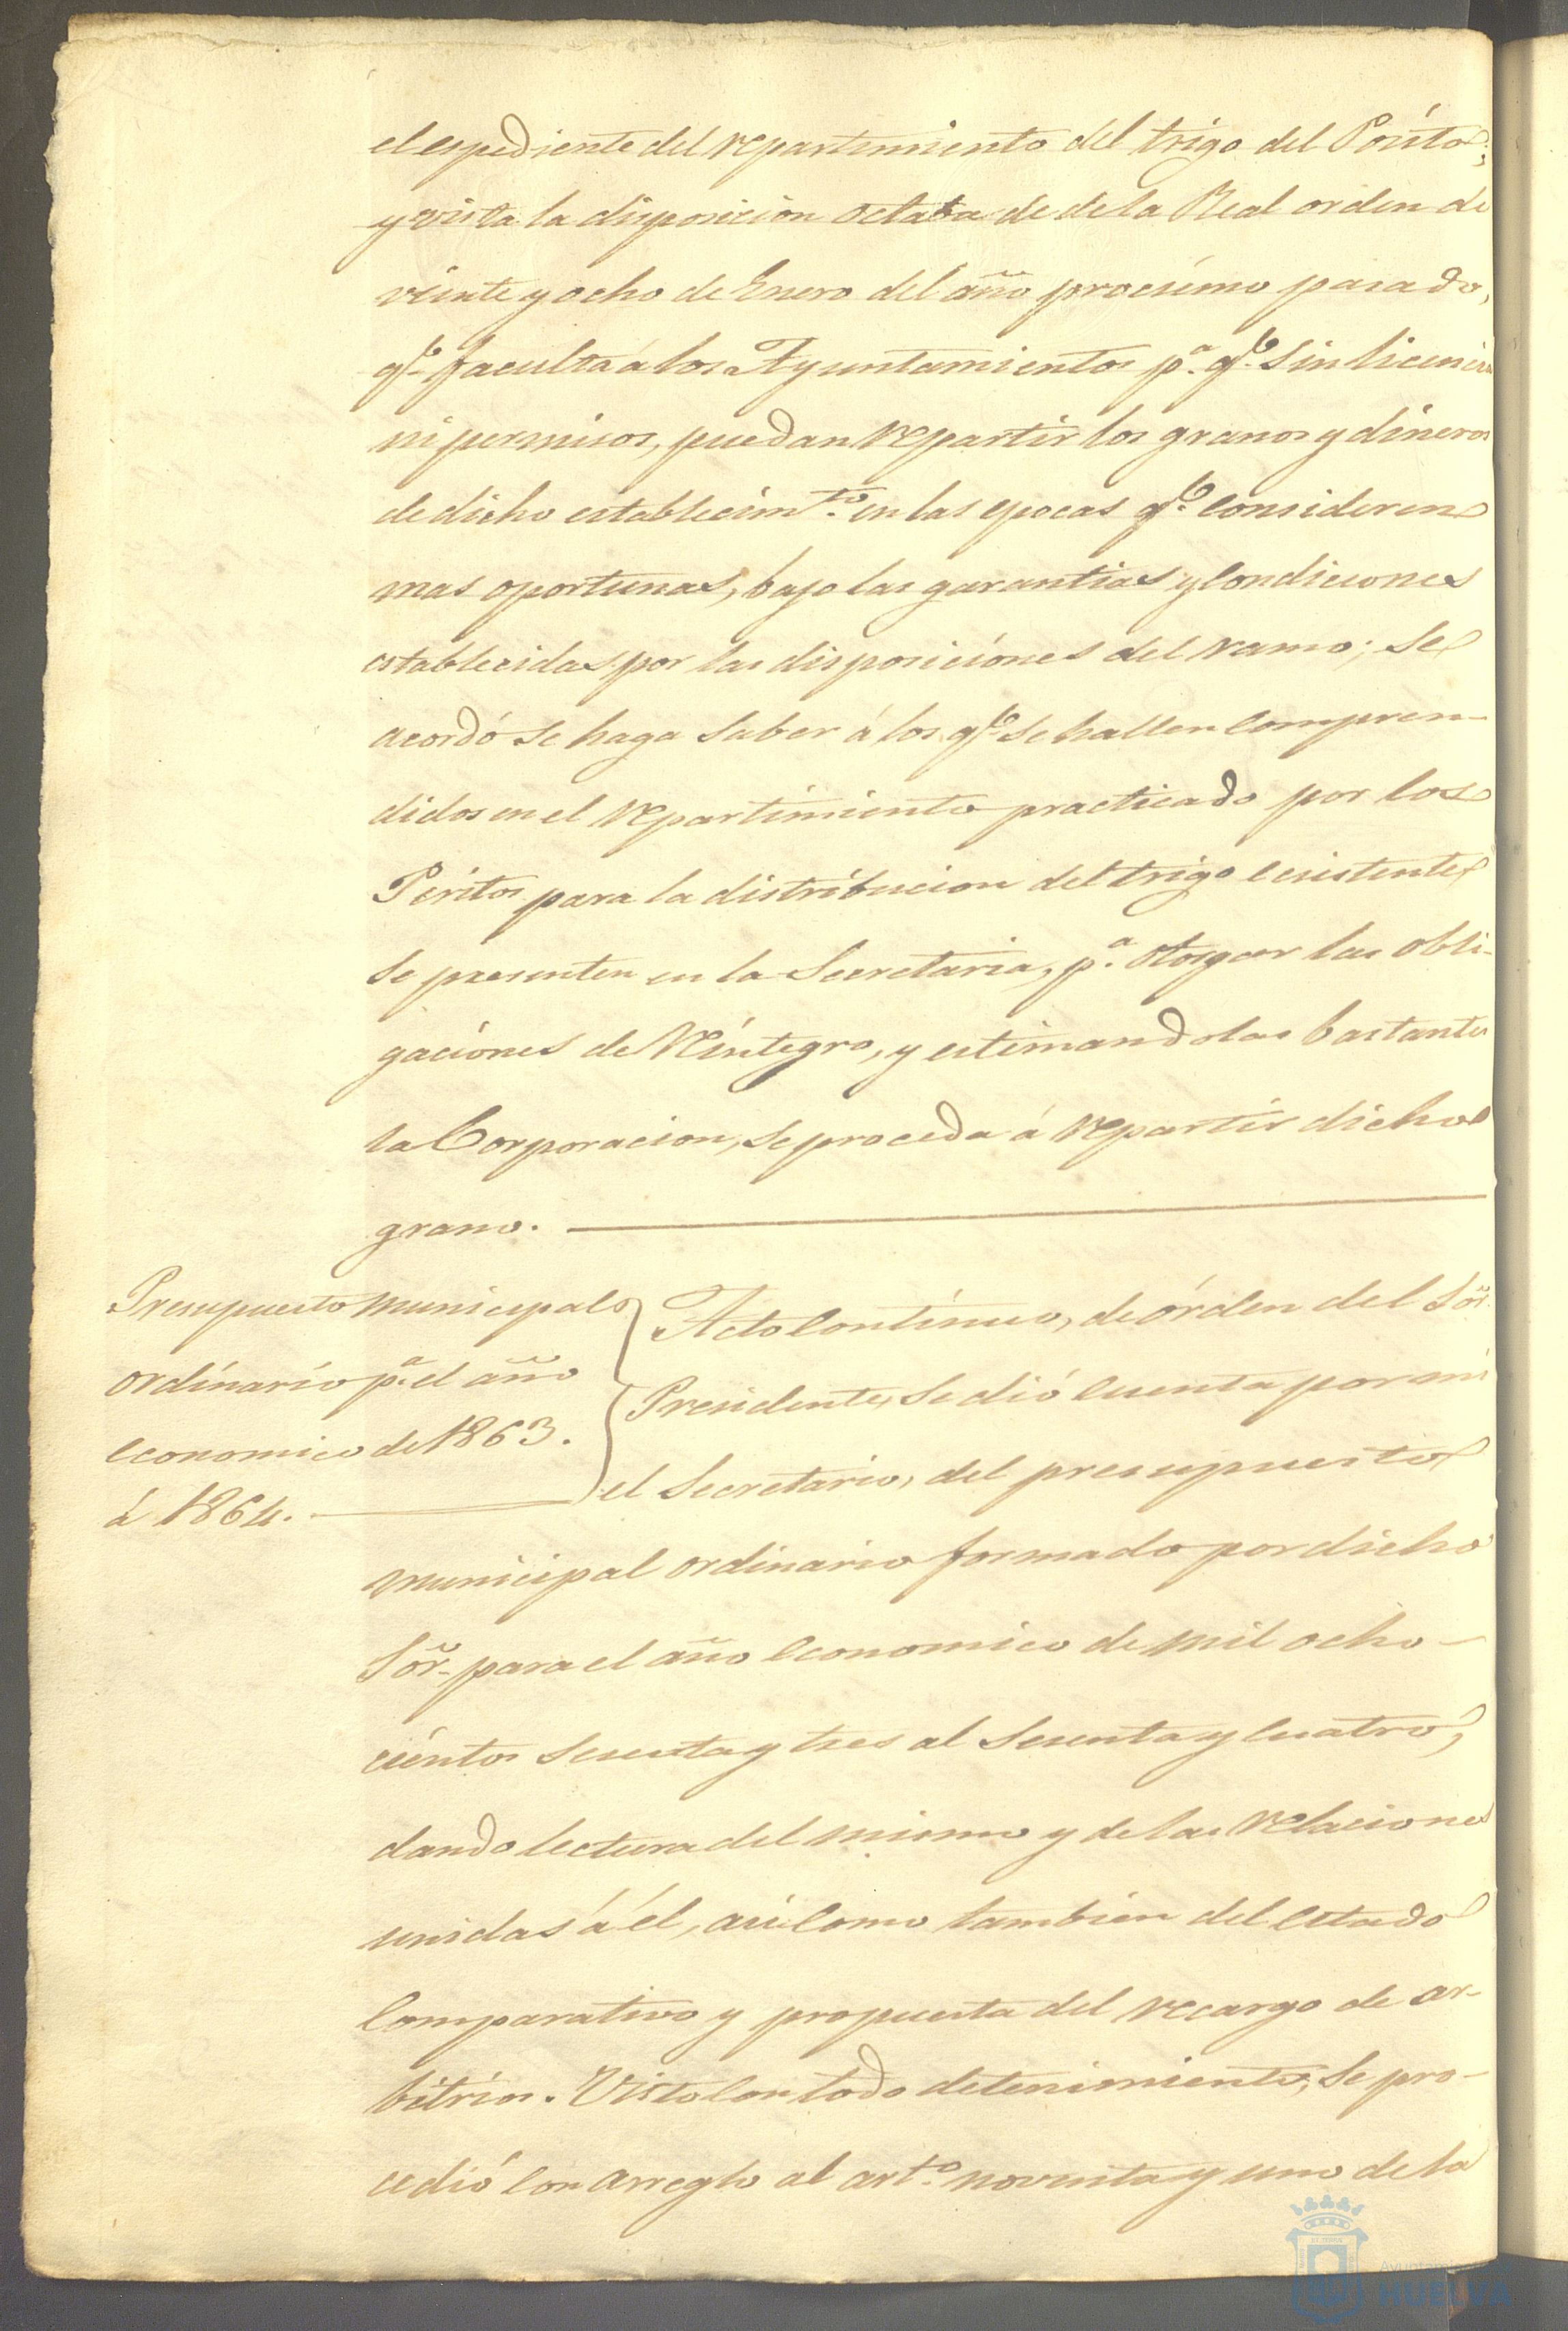 el espediente del repartimiento del trigo del Pósito;
y vista la disposicion octaba de de la Real orden de
veinte y ocho de Enero del año procsimo pasado,
q.e faculta á los Ayuntamientos p.a q.e sin licencia
ni permisos, puedan repartir los granos y dineros
de dicho establecim.to en las epocas q.e consideren
mas oportunas, bajo las garantias y condiciones
establecidas por las disposiciones del ramo; se
acordó se haga saber á los q.e se hallen compren-
didos en el repartimiento practicado por los
Peritos para la distribucion del trigo ecsistente
se presenten en la Secretaria, p.a otorgar las obli-
gaciones de reintegro, y estimandolas bastantes
la Corporacion, se proceda á repartir dicho
grano.
Presupuesto municipal
ordinario p.a el año
economico de 1863.
á 1864.
Acto continuo, de órden del Sõr.
Presidente, se dió cuenta por mi
el Secretario, del presupuesto
municipal ordinario formado por dicho
Sõr. para el año economico de mil ocho-
cientos sesenta y tres al sesenta y cuatro,
dando lectura del mismo y de las relaciones
unidas á él, asi como tambien del estado
comparativo y propuesta del recargo de ar-
bitrios. Visto con todo detenimiento; se pro-
cedió con arreglo al art.o noventa y uno de la
Ayuntamiento
HUELVA